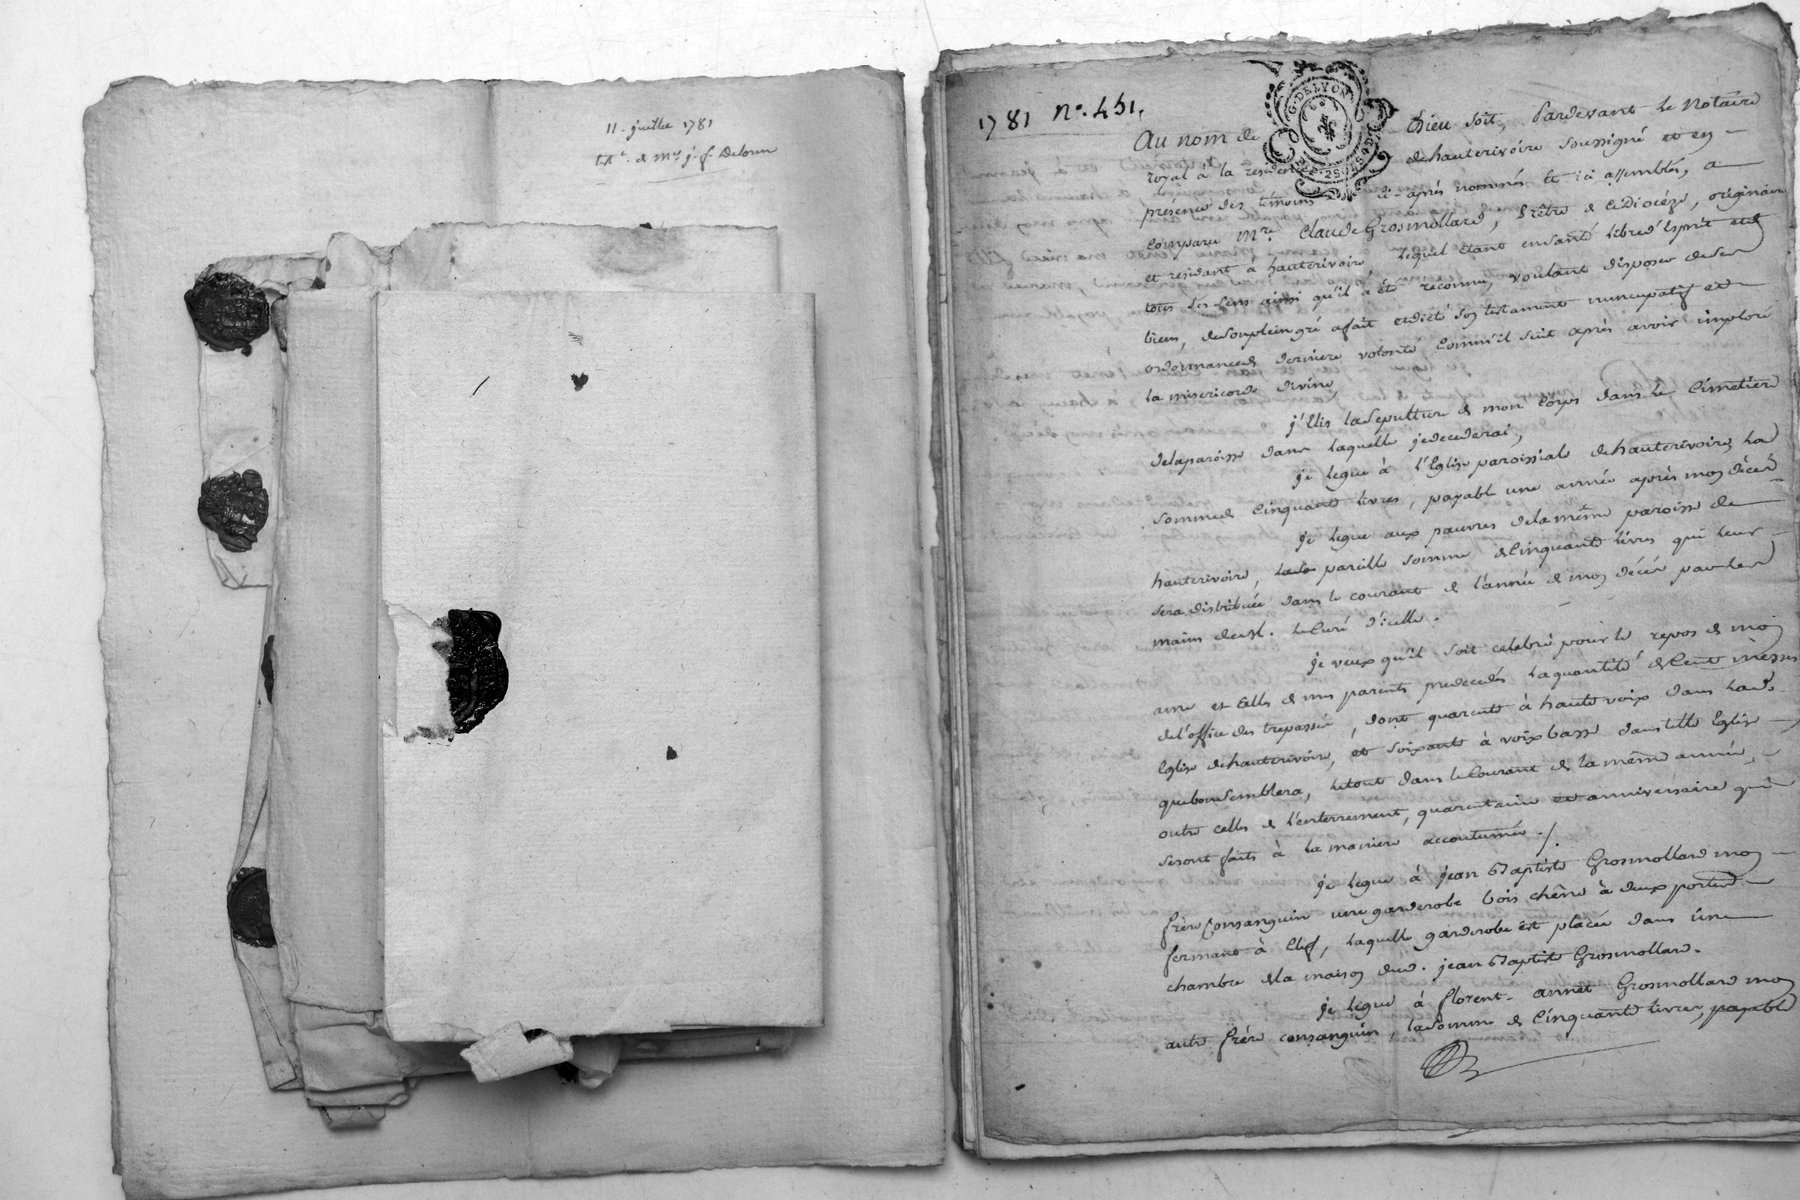 11. juillet 1781
tt.t de Mre j. f.
1781 n°. 451.
G. DE LYON
Au nom de Dieu soit, Pardevant le Notaire
royal à la residence dehauterivoire soussigné et en
présence des témoins ci-après nommés et ici assemblés, a
comparu Mre. Claude Grosmollard, Prêtre de ce Diocéze, originaire
et residant à hauterivoire lequel étant en santé libre d'Esprit et de
tous ses sens ainsi qu'il a été reconnu, voulant disposer de ses
biens, de son plein gré a fait et dicté son testament nuncupatif et
ordonnance de derniere volonté comm'il suit après avoir imploré
la misericorde divine,
j'Elis la Sepulture de mon Corps dans le Cimetiere
de la paroisse dans laquelle je decederai,
je legue à l'Eglise paroissiale de hauterivoire, la
somme de Cinquante livres, payable une année après mon décés
je legue aux pauvres de la même paroisse de
hauterivoire, la pareille somme de Cinquante livres qui leur
sera distribuée dans le courant de l'année de mon décés par les
mains de M. le Curé d'icelle.
je veux qu'il soit celebré pour le repos de mon
ame et celles de mes parents predecedés la quantité de Cent messes
de l'office des trepassés, dont quarante à haute voix dans lad.
Eglise de hauterivoire, et soixante à voix basse dans telle Eglise
que bon semblera, le tout dans le Courant de la même année,
outre celles de l'enterrement, quarantaine et anniversaire qui
seront faits à la maniere accoutumée ./.
je legue à jean Baptiste Grosmollard mon
frère Consanguin une garderobe bois chêne à deux portes
fermant à Clef, laquelle garderobe est placée dans une
chambre de la maison dud. jean Baptiste Grosmollard.
je legue à florent-annet Grosmollard mon
autre frère consanguin, la somme de Cinquante livres, payable